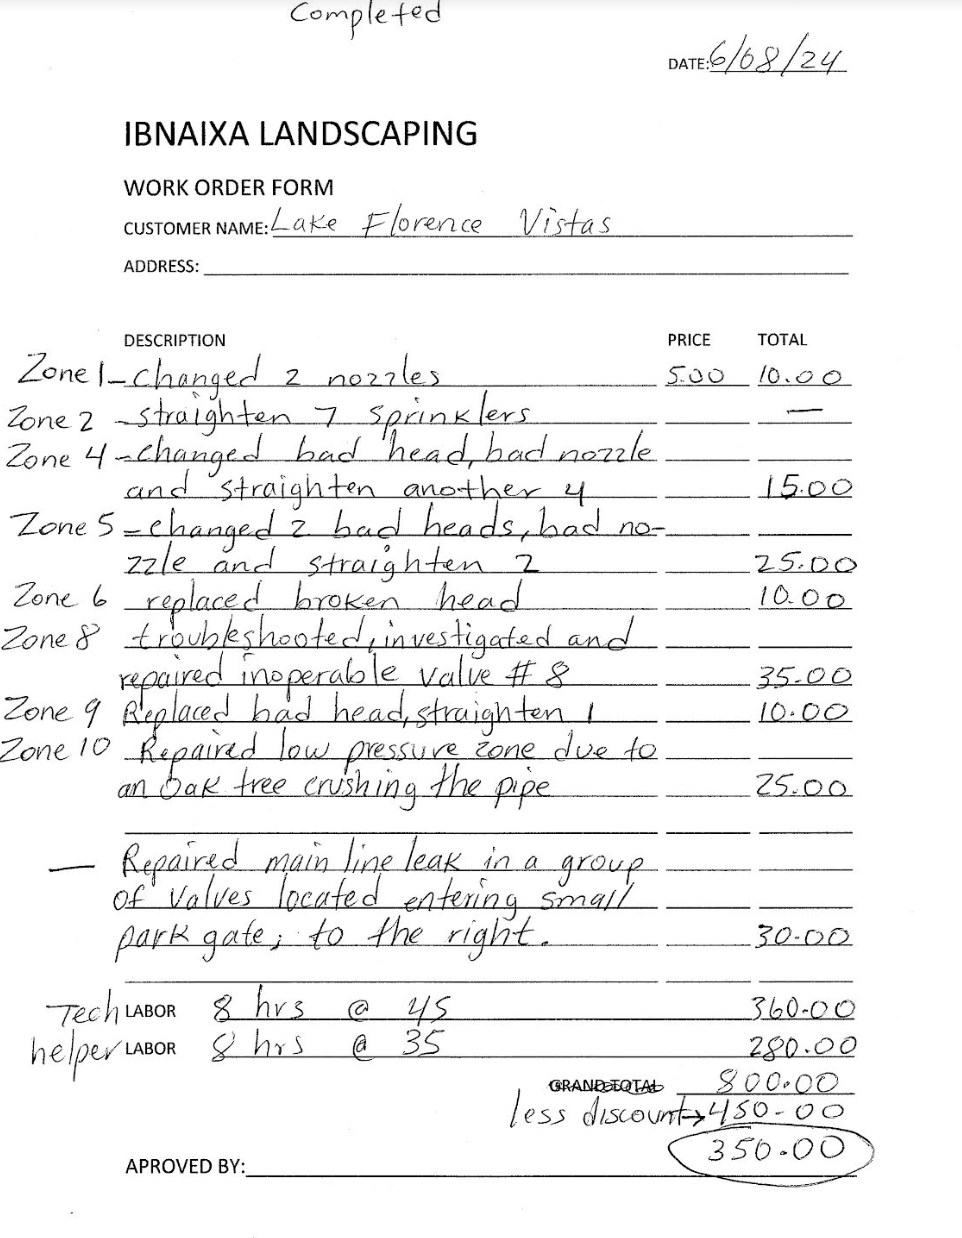 Completed
DATE: 6/08/24
IBNAIXA LANDSCAPING
WORK ORDER FORM
CUSTOMER NAME: Lake Florence Vistas
ADDRESS:
DESCRIPTION PRICE TOTAL
Zone 1 - changed 2 nozzles 5.00 10.00
Zone 2 - straighten 7 sprinklers —
Zone 4 - changed bad head, bad nozzle
and straighten another 4 15.00
Zone 5 - changed 2 bad heads, bad no-
zzle and straighten 2 25.00
Zone 6 replaced broken head 10.00
Zone 8 troubleshooted, investigated and
repaired inoperable valve # 8 35.00
Zone 9 Replaced bad head, straighten 1 10.00
Zone 10 Repaired low pressure zone due to
an oak tree crushing the pipe 25.00
— Repaired main line leak in a group
of valves located entering small
park gate; to the right. 30.00
Tech LABOR 8 hrs @ 45 360.00
helper LABOR 8 hrs @ 35 280.00
GRAND TOTAL 800.00
less discount → 450.00
350.00
APROVED BY: